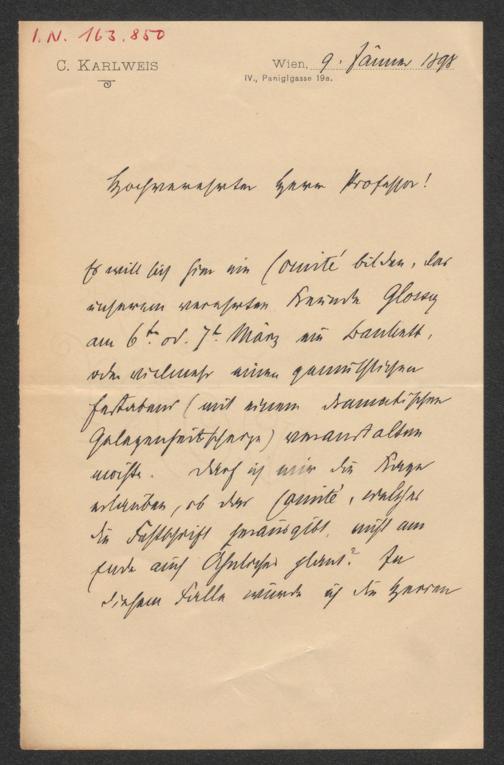 I.N. 163.850
C. KARLWEIS
Wien, 9. Jänner 1898
IV., Paniglgasse 19a.
Hochverehrter Herr Professor!
Es will sich hier ein Comité bilden, das
unserem verehrten Freunde Glossy
am 6ten od. 7t März ein Bankett,
oder vielmehr einen gemüthlichen
Festabend (mit einem dramatischen
Gelegenheitsscherze) veranstalten
möchte. Darf ich mir die Frage
erlauben, ob das Comité, welches
die Festschrift herausgibt, nicht am
Ende auch Ähnliches plant? In
diesem Falle würde ich die Herren